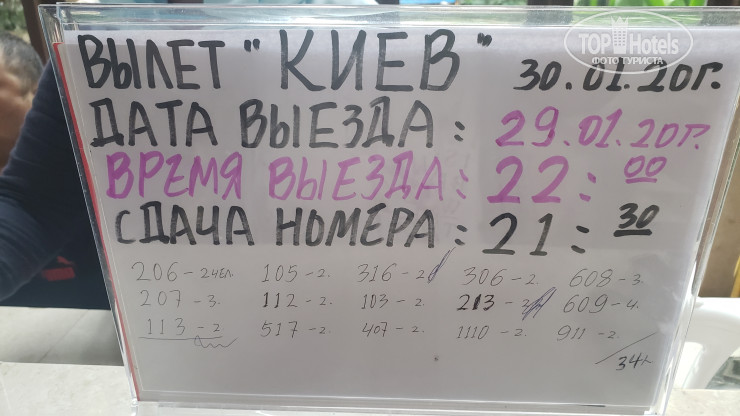 TOP Hotels
ФОТО ТУРИСТА
ВЫЛЕТ "КИЕВ" 30.01.20г.
ДАТА ВЫЕЗДА: 29.01.20г.
ВРЕМЯ ВЫЕЗДА: 22:00
СДАЧА НОМЕРА: 21:30
206-2чел. 105-2. 316-2 306-2. 608-3.
207-3. 112-2. 103-2. 213-2 609-4.
113-2. 517-2. 407-2. 1110-2. 911-2.
34ч